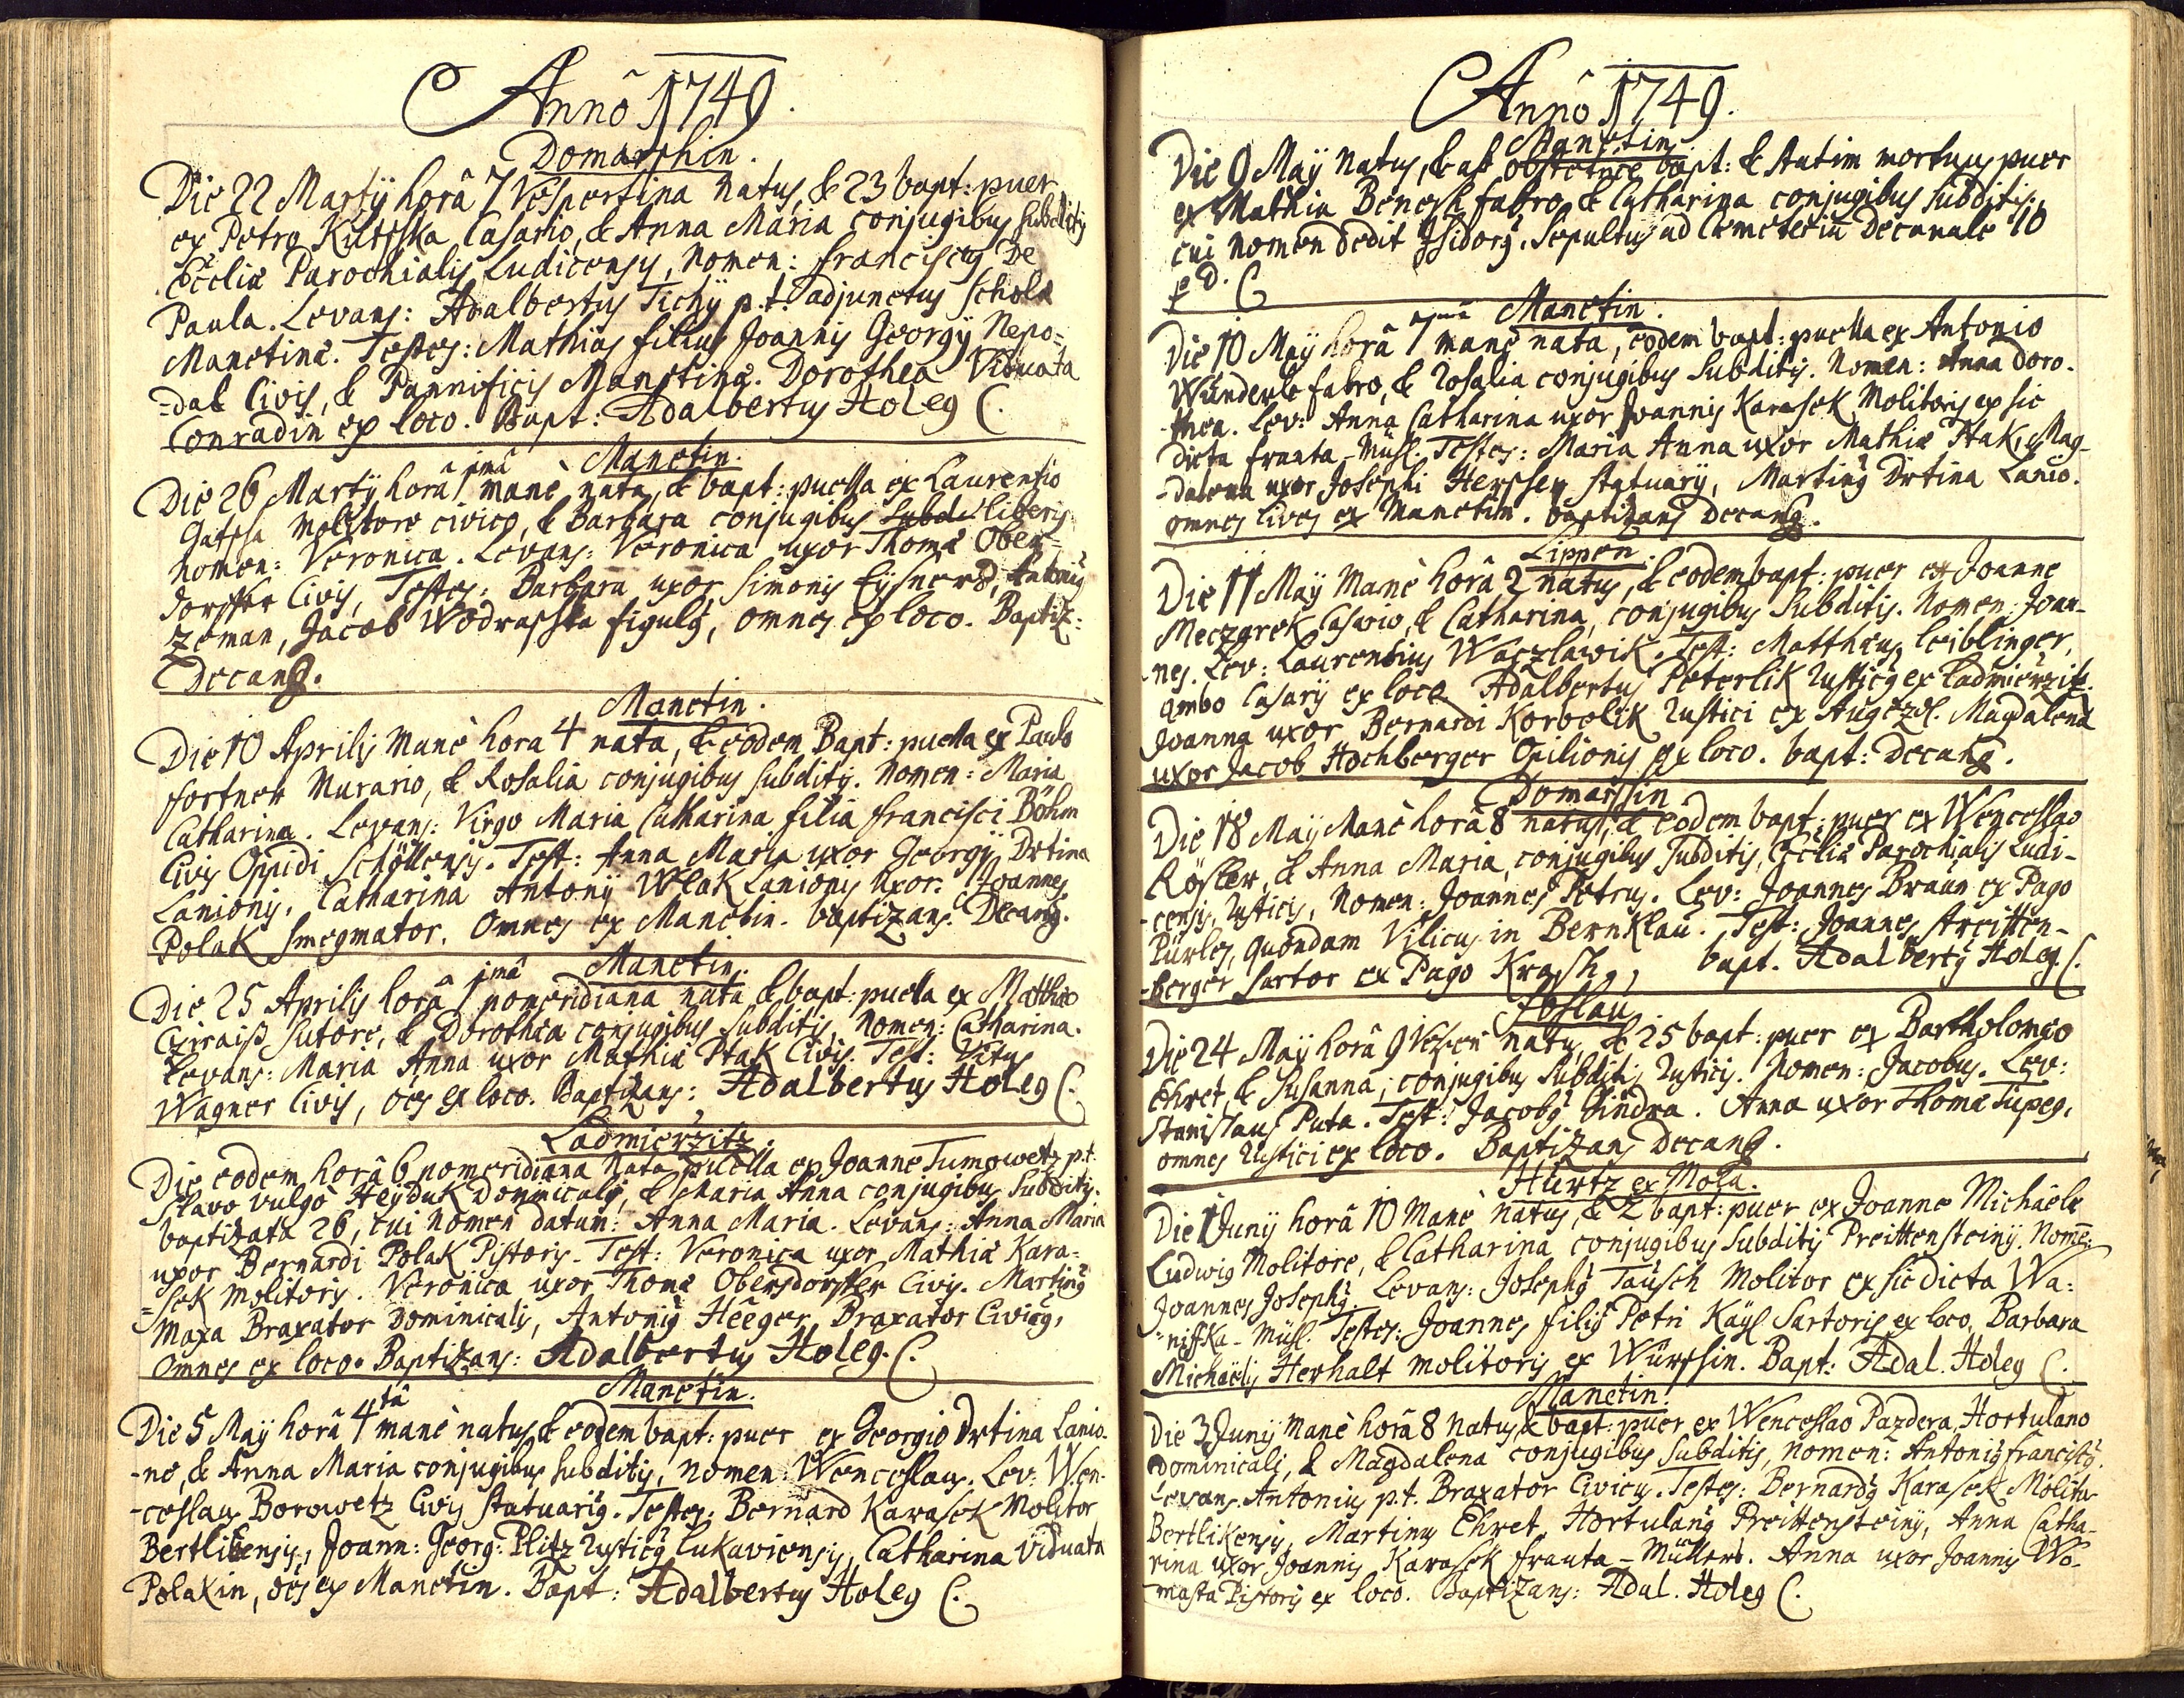 Anno 1749.
Domaschin.
Die 22 Martÿ horâ 7 Vespertina natus, & 23 bapt: puer
ex Petro Kutsska Casario, & Anna Maria conjugibus subditis
Ecclia Parochialis Ludicensis, Nomen: Franciscus De
Paula. Levans: Adalbertus Tichÿ p.t. adjunctus Schola
Manetina. Testes: Mathias filius Joannis Georgÿ Nepo-
-dal Civis, & Pannificis Manetina. Dorothea Viduata
Conradin ex loco. Bapt: Adalbertus Holeg C.
Manetin.
Die 26 Martÿ horâ 1 imâ mane nata, & bapt: puella ex Laurentio
Molitore civico, & Barbara conjugibus liberis
Nomen: Veronica. Levans: Veronica uxor Thoma Ober-
dorffer Civis, Testes: Barbara uxor Simonis Eÿsnero, Antonius
Zeman, Jacob Wodrasska figulus, omnes ex loco. Baptiz:
Decanus.
Manetin.
Die 10 Aprilis Mane hora 4 nata, & eodem Bapt: puella ex Paulo
Fortner Murario, & Rosalia conjugibus subditis. Nomen: Maria
Catharina. Levans: Virgo Maria Catharina filia Francisci Böhm
Civis Oppidi Schöllensis. Test: Anna Maria uxor Georgÿ Drtina
Lanionis. Catharina Antonÿ Wlak Lanionis uxor. Joannes
Polak Smegmator. Omnes ex Manetin. baptizans Decanus.
Manetin.
Die 25 Aprilis horâ 1 imâ pomeridiana nata & bapt: puella ex Matthæo
Sutore, & Dorothea conjugibus subditis, Nomen: Catharina.
Levans: Maria Anna uxor Mathia Ptak Civis. Test: Vitus
Wagner Civis, oes ex loco. Baptizans: Adalbertus Holeg C.
Ladmierzitz.
Die eodem horâ 6 pomeridiana Nata puella ex Joanne Tumowetz p.t.
Slavo vulgò Heÿduk Dominicalis, & Maria Anna conjugibus subditis.
baptizata 26, cui Nomen datum: Anna Maria. Levans: Anna Maria
uxor Bernardi Polak Pistoris. Test: Veronica uxor Mathia Kara-
=sek Molitoris. Veronica uxor Thoma Obersdorffer Civis. Martinus
Maxa Braxator Dominicalis, Antonius Heeger, Braxator Civicus,
Omnes ex loco. Baptizans: Adalbertus Holeg. C.
Manetin.
Die 5 Maÿ horâ 4tâ mane natus, & eodem bapt: puer ex Georgio Drtina Lanio-
-ne, & Anna Maria conjugibus subditis, Nomen: Wenceslaus. Lev: Wen-
-ceslaus Borowetz Civis Statuarius. Testes: Bernard Karasek Molitor
Bertlikensis, Joann: Georg: Plitz Rusticus Lukaviensis, Catharina Viduata
Polakin, oes ex Manetin. Bapt: Adalbertus Holeg C.
Anno 1749.
Manetin.
Die 9 Maÿ Natus, & ab obstetrice bapt: & statim mortuus puer
ex Mathia Benesh fabro, & Catharina conjugibus subditis,
cui Nomen dedit Isidorus. Sepultus ad Cemeteriu Decanale 10
p D. C
Manetin.
Die 10 Maÿ horâ 1 mane nata, eodem bapt: puella ex Antonio
Wunderle fabro, & Rosalia conjugibus subditis. Nomen: Anna Doro-
-thea. Lev: Anna Catharina uxor Joannis Karasek Molitoris ex sic
Dicta Frauta-Mühl. Testes: Maria Anna uxor Mathia Ptak, Mag-
-dalena uxor Josephi Herscher Statuarÿ, Martinus Drtina Lanio.
Omnes Cives ex Manetin. baptizans Decanus.
Lippen.
Die 11 Maÿ Mane horâ 2 natus, & eodem bapt: puer ex Joanne
Meczgrek Casario, & Catharina, conjugibus subditis. Nomen: Joan-
-nes. Lev: Laurentius Waczlawik. Test: Matthæus Leiblinger,
ambo Casarÿ ex loco. Adalbertus Peterlik Rusticus ex Ladmierzitz.
Joanna uxor Bernardi Korbelik Rustici ex Augezdl. Magdalena
uxor Jacob Hochberger Opilionis ex loco. bapt: Decanus.
Domassin
Die 18 Maÿ Mane horâ 8 natus, & eodem bapt: puer ex Wenceslao
Rösler, & Anna Maria, conjugibus subditis, Ecclia Parochialis Ludi-
-censis, Rusticis, Nomen: Joannes Petrus. Lev: Joannes Braun ex Pago
Pürles, quondam Vilicus in Bernklau. Test: Joannes Streitten-
-berger Sartor ex Pago Krash, bapt. Adalbertus Holeg C.
Joslau
Die 24 Maÿ horâ 9 Vesperi natus, & 25 bapt: puer ex Bartholomeo
Ehret, & Susanna, conjugibus subditis Rusticis. Nomen: Jacobus. Lev:
Stanislaus Puta. Test: Jacobus Sindra. Anna uxor Thoma Tupeg,
omnes Rustici ex loco. Baptizans Decanus.
Hurtz ex Mola.
Die 1 Junÿ horâ 10 Mane natus, & 2 bapt: puer ex Joanne Michaele
Ludwig Molitore, & Catharina conjugibus subditis Preittensteinÿ. Nomē:
Joannes Josephus. Levans: Josephus Tausch Molitor ex sic dicta Wa-
=nisska-Mühl. Testes: Joannes filius Petri Kaÿl Sartoris ex loco, Barbara
Michaëlis Herhalt Molitoris ex Wursfin. Bapt: Adal. Holeg C.
Manetin.
Die 3 Junÿ Mane horâ 8 natus, & bapt: puer ex Wenceslao Pazdera, Hortulano
Dominicali, & Magdalena conjugibus subditis, nomen: Antonius Franciscus.
Levans. Antonius p.t. Braxator Civicus. Testes: Bernardus Karasek Molitor
Bertlikensis, Martinus Ehret, Hortulanus Preittensteinÿ, Anna Catha-
rina uxor Joannis Karasek Frauta-Müllers. Anna uxor Joannis Wo-
-masta Pistoris ex loco. Baptizans: Adal. Holeg C.